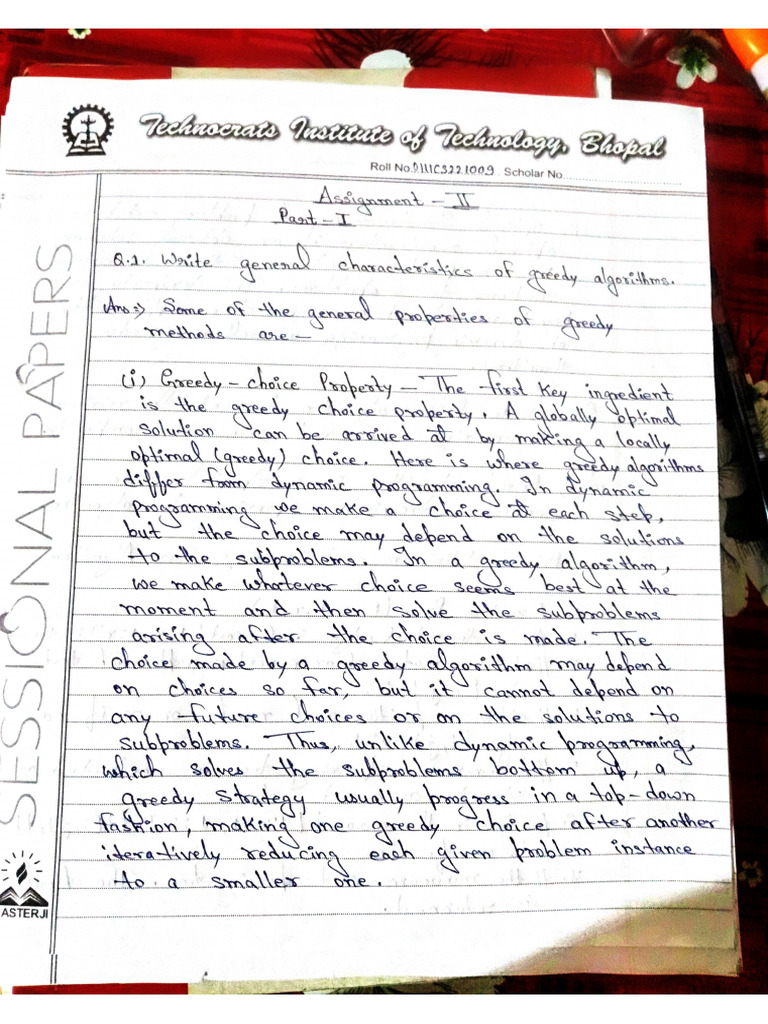 Technocrats Institute of Technology, Bhopal
Roll No. Scholar No.
Assignment - II
Part - I
Q.1. Write general characteristics of greedy algorithms.
Ans:⇒ Some of the general properties of greedy
methods are -
(i) Greedy - choice Property - The first key ingredient
is the greedy choice property. A globally optimal
solution can be arrived at by making a locally
optimal (greedy) choice. Here is where greedy algorithms
differ from dynamic programming. In dynamic
programming we make a choice at each step,
but the choice may depend on the solutions
to the subproblems. In a greedy algorithm,
we make whatever choice seems best at the
moment and then solve the subproblems
arising after the choice is made. The
choice made by a greedy algorithm may depend
on choices so far, but it cannot depend on
any future choices or on the solutions to
subproblems. Thus, unlike dynamic programming,
which solves the subproblems bottom up, a
greedy strategy usually progress in a top-down
fashion, making one greedy choice after another
iteratively reducing each given problem instance
to a smaller one.
SESSIONAL PAPERS
ASTERJI